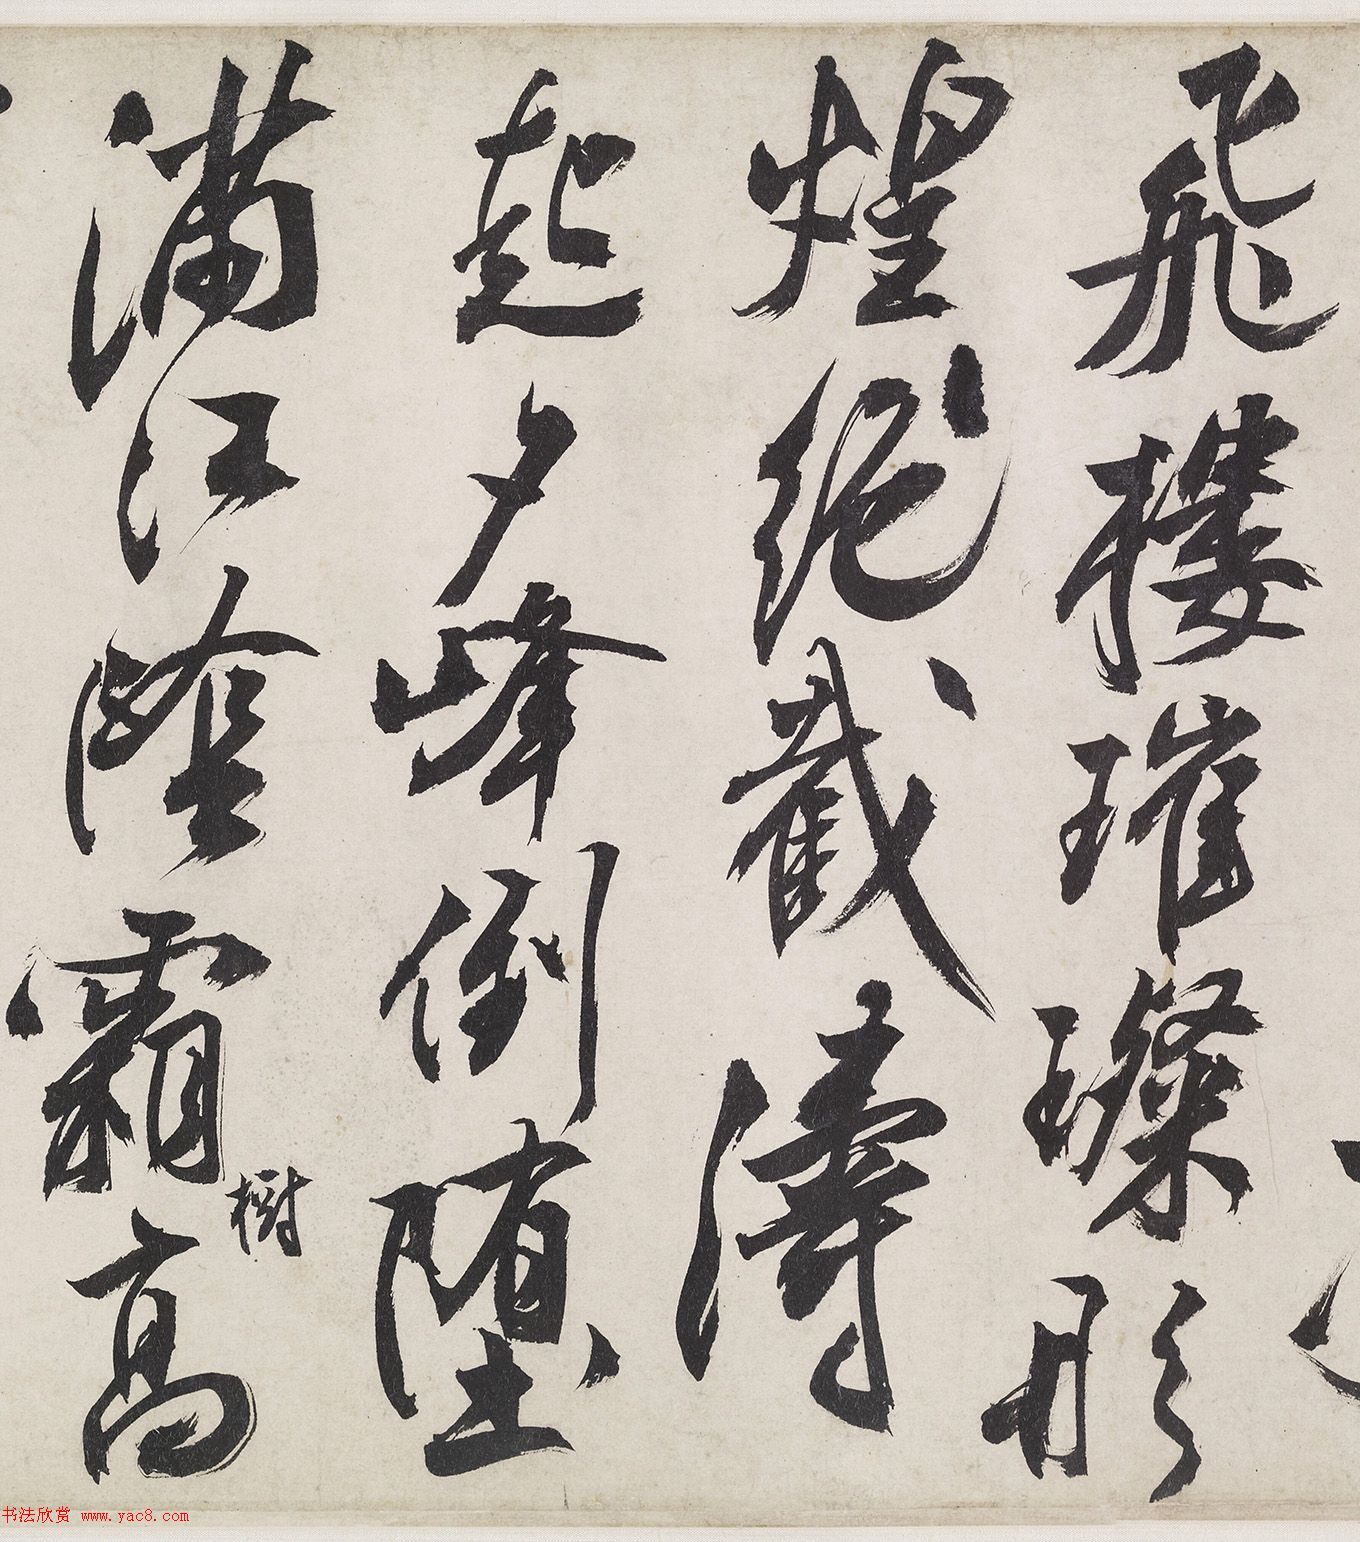 飛樓璀璨彤
煌絕截濤
起夕峰倒墮
滿江陰霜高
樹
书法欣赏 www.yac8.com